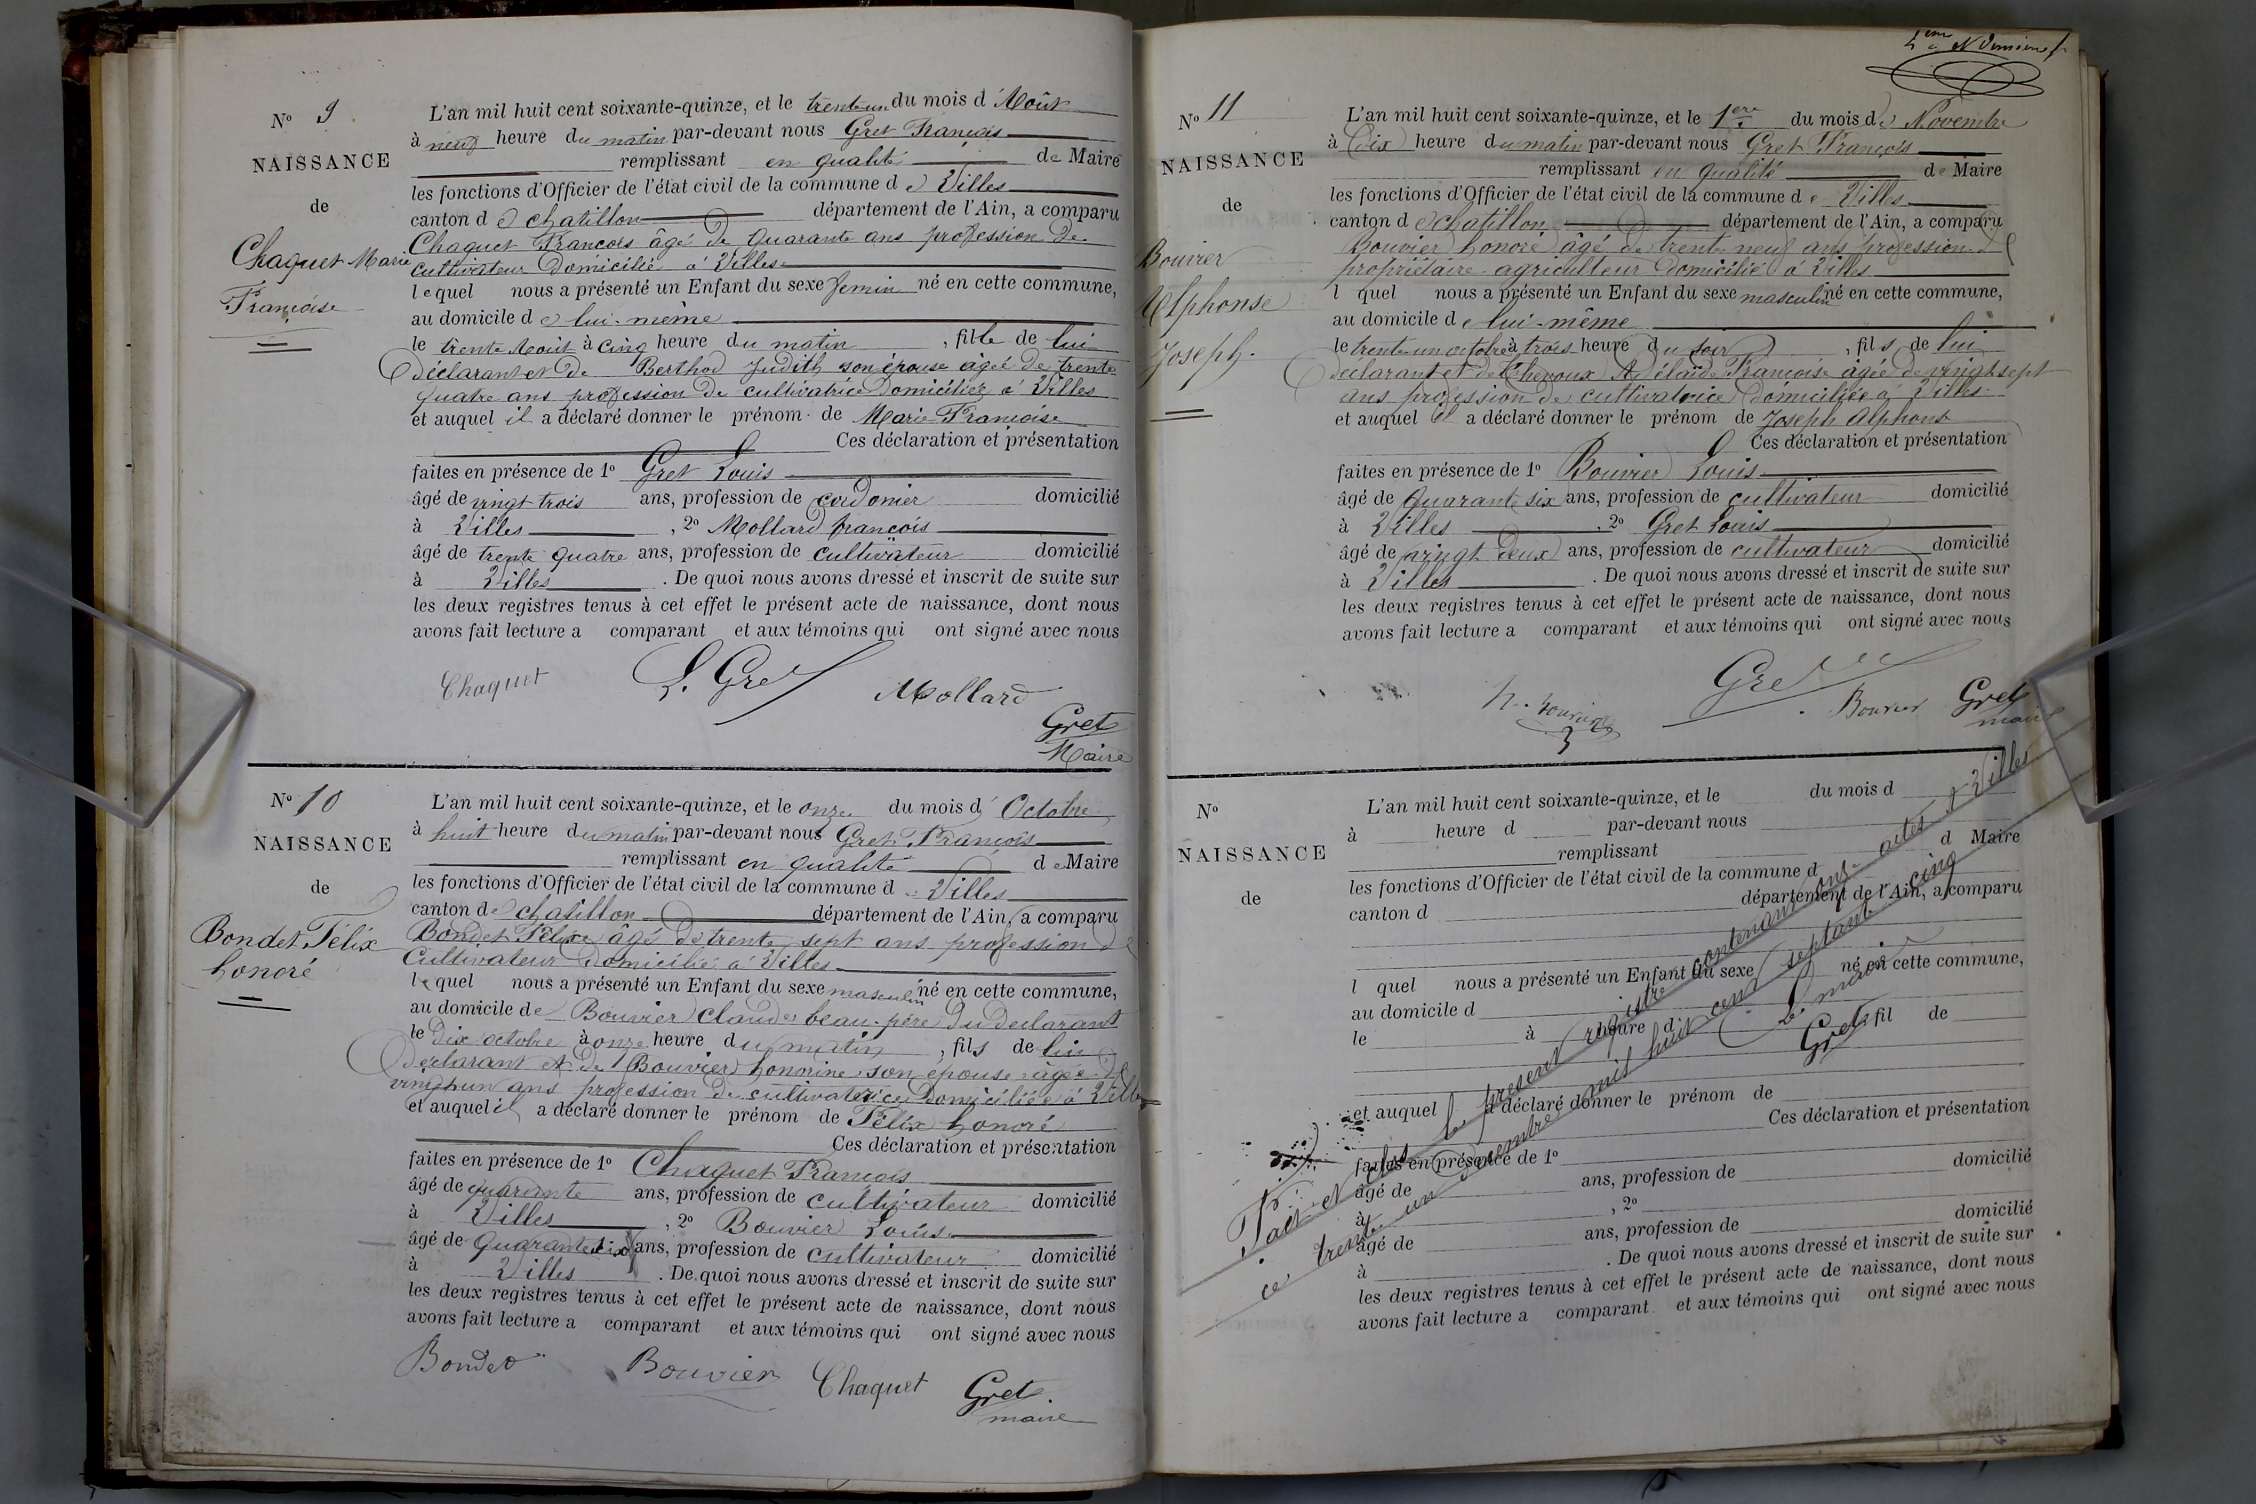 N° 9
NAISSANCE
de
Chaquet Marie
Françoise
L'an mil huit cent soixante-quinze, et le trente un du mois d'Août
à neuf heure du matin par-devant nous Gret François
remplissant en qualité de Maire
les fonctions d'Officier de l'état civil de la commune de Villes
canton de chatillon département de l'Ain, a comparu
Chaquet François âgé de quarante ans profession de
cultivateur domicilié à Villes
lequel nous a présenté un Enfant du sexe femin né en cette commune,
au domicile de lui-même
le trente Août à cinq heure du matin, fille de lui
déclarant et de Berthod Judith son épouse âgée de trente
quatre ans profession de cultivatrice domiciliez à Villes
et auquel il a déclaré donner le prénom de Marie Françoise
Ces déclaration et présentation
faites en présence de 1° Gret Louis
âgé de vingt trois ans, profession de cordonier domicilié
à Villes, 2° Mollard françois
âgé de trente quatre ans, profession de cultivateur domicilié
à Villes. De quoi nous avons dressé et inscrit de suite sur
les deux registres tenus à cet effet le présent acte de naissance, dont nous
avons fait lecture a comparant et aux témoins qui ont signé avec nous
Chaquet L. Gret Mollard
Gret
Maire
N° 10
NAISSANCE
de
Bondet Félix
honoré
L'an mil huit cent soixante-quinze, et le onze du mois d'Octobre
à huit heure du matin par-devant nous Gret François
remplissant en qualité de Maire
les fonctions d'Officier de l'état civil de la commune de Villes
canton de chatillon département de l'Ain, a comparu
Bondet Félix âgé de trente sept ans profession de
Cultivateur domicilié à Villes
lequel nous a présenté un Enfant du sexe masculin né en cette commune,
au domicile de Bouvier claude beau-père du declarant
le Dix octobre à onze heure du matin, fils de lui
declarant et de Bouvier honorine son épouse âgée de
vingt un ans profession de cultivatrice domiciliée à Villes
et auquel il a déclaré donner le prénom de Félix honoré
Ces déclaration et présentation
faites en présence de 1° Chaquet François
âgé de quarante ans, profession de cultivateur domicilié
à Villes, 2° Bouvier Louis
âgé de quarante six ans, profession de cultivateur domicilié
à Villes. De quoi nous avons dressé et inscrit de suite sur
les deux registres tenus à cet effet le présent acte de naissance, dont nous
avons fait lecture a comparant et aux témoins qui ont signé avec nous
Bondet Bouvier Chaquet Gret
maire
5eme et Dernier f.
N° 11
NAISSANCE
de
Bouvier
Alphonse
Joseph.
L'an mil huit cent soixante-quinze, et le 1ere du mois de Novembre
à Dix heure du matin par-devant nous Gret François
remplissant en qualité de Maire
les fonctions d'Officier de l'état civil de la commune de Villes
canton de chatillon département de l'Ain, a comparu
bouvier honoré âgé de trente neuf ans profession de
propriétaire agriculteur domicilié à Villes
l quel nous a présenté un Enfant du sexe masculin né en cette commune,
au domicile de lui-même
le trente un octobre à trois heure du soir, fils de lui
déclarant et de Chevoux Adélaïde Françoise âgée de vingt sept
ans profession de cultivatrice domiciliée à Villes
et auquel il a déclaré donner le prénom de Joseph Alphons
Ces déclaration et présentation
faites en présence de 1° Bouvier Louis
âgé de quarante six ans, profession de cultivateur domicilié
à Villes, 2° Gret Louis
âgé de vingt deux ans, profession de cultivateur domicilié
à Villes. De quoi nous avons dressé et inscrit de suite sur
les deux registres tenus à cet effet le présent acte de naissance, dont nous
avons fait lecture a comparant et aux témoins qui ont signé avec nous
h. bouvier Gret Bouvier Gret
maire
N°
NAISSANCE
de
L'an mil huit cent soixante-quinze, et le du mois d
à heure d par-devant nous
remplissant d Maire
les fonctions d'Officier de l'état civil de la commune d
canton d département de l'Ain, a comparu
l quel nous a présenté un Enfant du sexe né en cette commune,
au domicile d
le à heure d, fil de
et auquel a déclaré donner le prénom de
Ces déclaration et présentation
faites en présence de 1°
âgé de ans, profession de domicilié
à, 2°
âgé de ans, profession de domicilié
à. De quoi nous avons dressé et inscrit de suite sur
les deux registres tenus à cet effet le présent acte de naissance, dont nous
avons fait lecture a comparant et aux témoins qui ont signé avec nous
Fait et clos le présent registre contenant onze actes à Villes
ce trente un Décembre mil huit cent septante cinq
Le maire
Gret